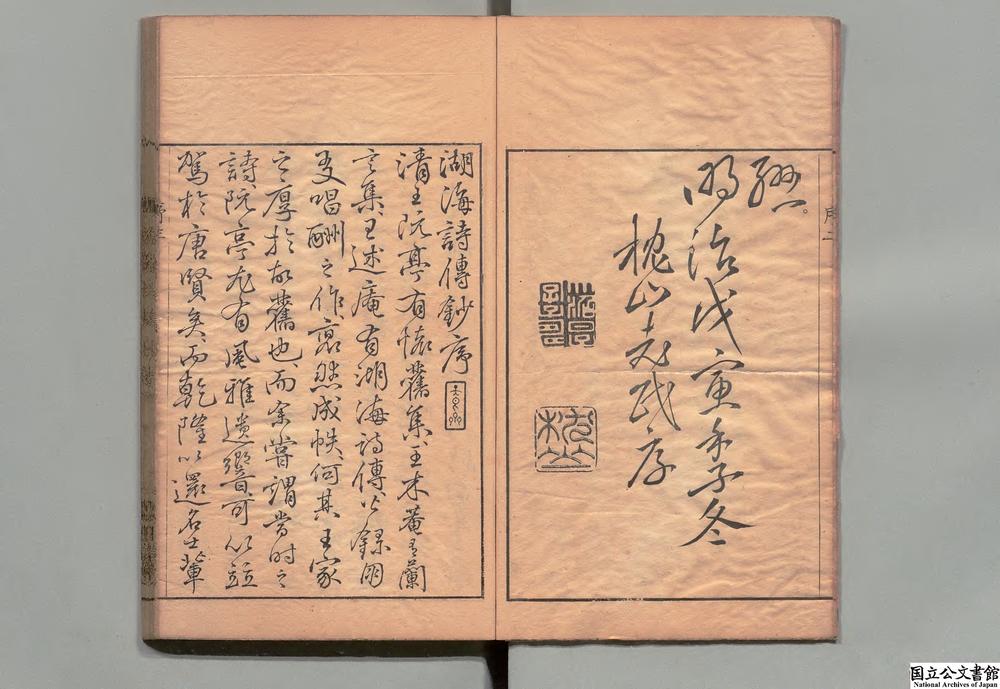 序二
明治戊寅季冬
枕山老民序
枕山
湖海詩傳鈔序
清王阮亭有懷舊集、王木菴有蘭
言集、王述庵有湖海詩傳、以錄朋
友唱酬之作、裒然成帙、何其王家
之厚於故舊也、而余嘗謂當時之
詩、阮亭尤有風雅遺響、可以竝
駕於唐賢矣、而乾隆以還名士輩
国立公文書館
National Archives of Japan